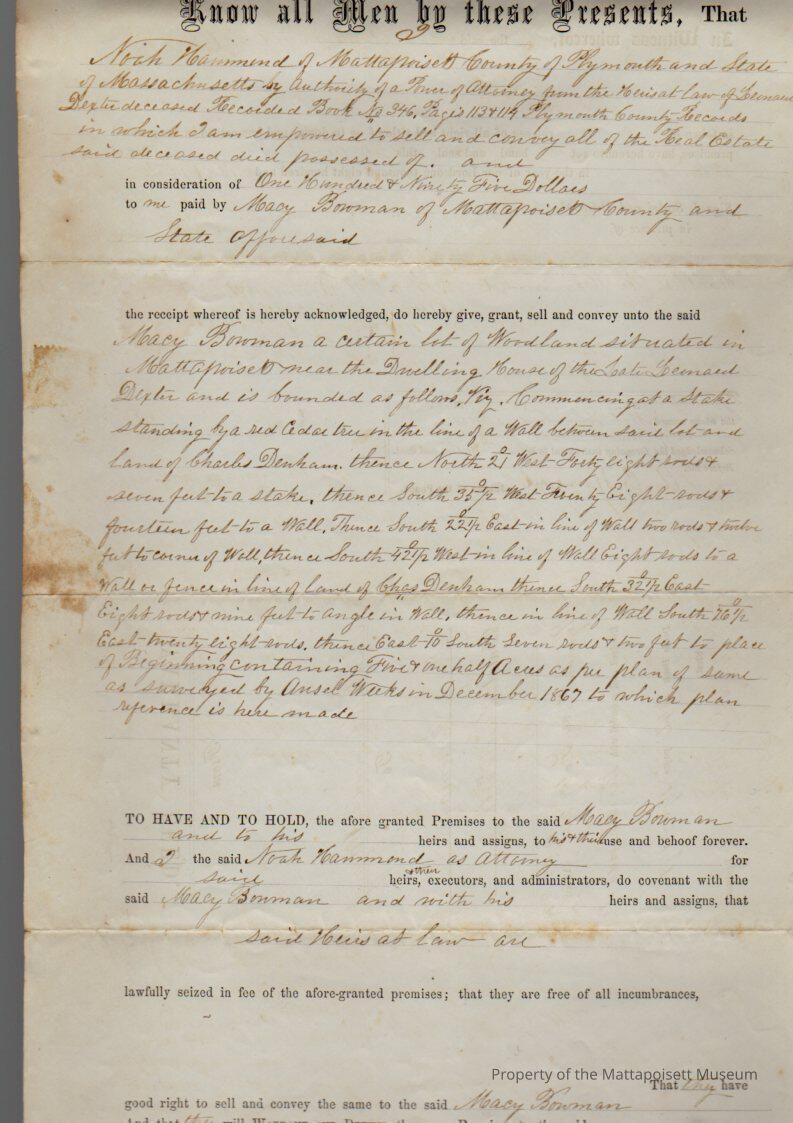 Know all Men by these Presents, That
I
Noah Hammond of Mattapoisett County of Plymouth and State
of Massachusetts by Authority of a Power of Attorney from the Heirs at law of Leonard
Dexter deceased Recorded Book No 346, Pages 113 & 114 Plymouth County Records
in which I am empowered to sell and convey all of the Real Estate
said deceased died possessed of. and
in consideration of One Hundred & Ninety Five Dollars
to me paid by Macy Bowman of Mattapoisett County and
State afforesaid
the receipt whereof is hereby acknowledged, do hereby give, grant, sell and convey unto the said
Macy Bowman a certain lot of Woodland situated in
Mattapoisett near the Dwelling House of the Late Leonard
Dexter and is bounded as follows, Viz. Commencing at a Stake
standing by a red Cedar tree in the line of a Wall between said lot and
land of Charles Denham. thence North 21° West Forty eight rods &
seven feet to a stake, thence South 35°1/2 West Twenty Eight rods &
fourteen feet to a Wall. Thence South 22°1/2 East in line of Wall two rods & twelve
feet to corner of Wall, thence South 42°1/2 West in line of Wall Eight rods to a
Wall or fence in line of land of Chas Denham thence South 32°1/2 East
Eight rods & nine feet to angle in Wall, thence in line of Wall South 16°1/2
East twenty eight rods. thence East 10° South Seven rods & two feet to place
of Beginning containing Five & one half Acres as per plan of same
as surveyed by Ansel Weeks in December 1867 to which plan
reference is here made
TO HAVE AND TO HOLD, the afore granted Premises to the said Macy Bowman
and to his heirs and assigns, to his & their use and behoof forever.
And I the said Noah Hammond as Attorney for
said & their heirs, executors, and administrators, do covenant with the
said Macy Bowman and with his heirs and assigns, that
said Heirs at law are
lawfully seized in fee of the afore-granted premises; that they are free of all incumbrances,
Property of the Mattapoisett Museum
That they have
good right to sell and convey the same to the said Macy Bowman